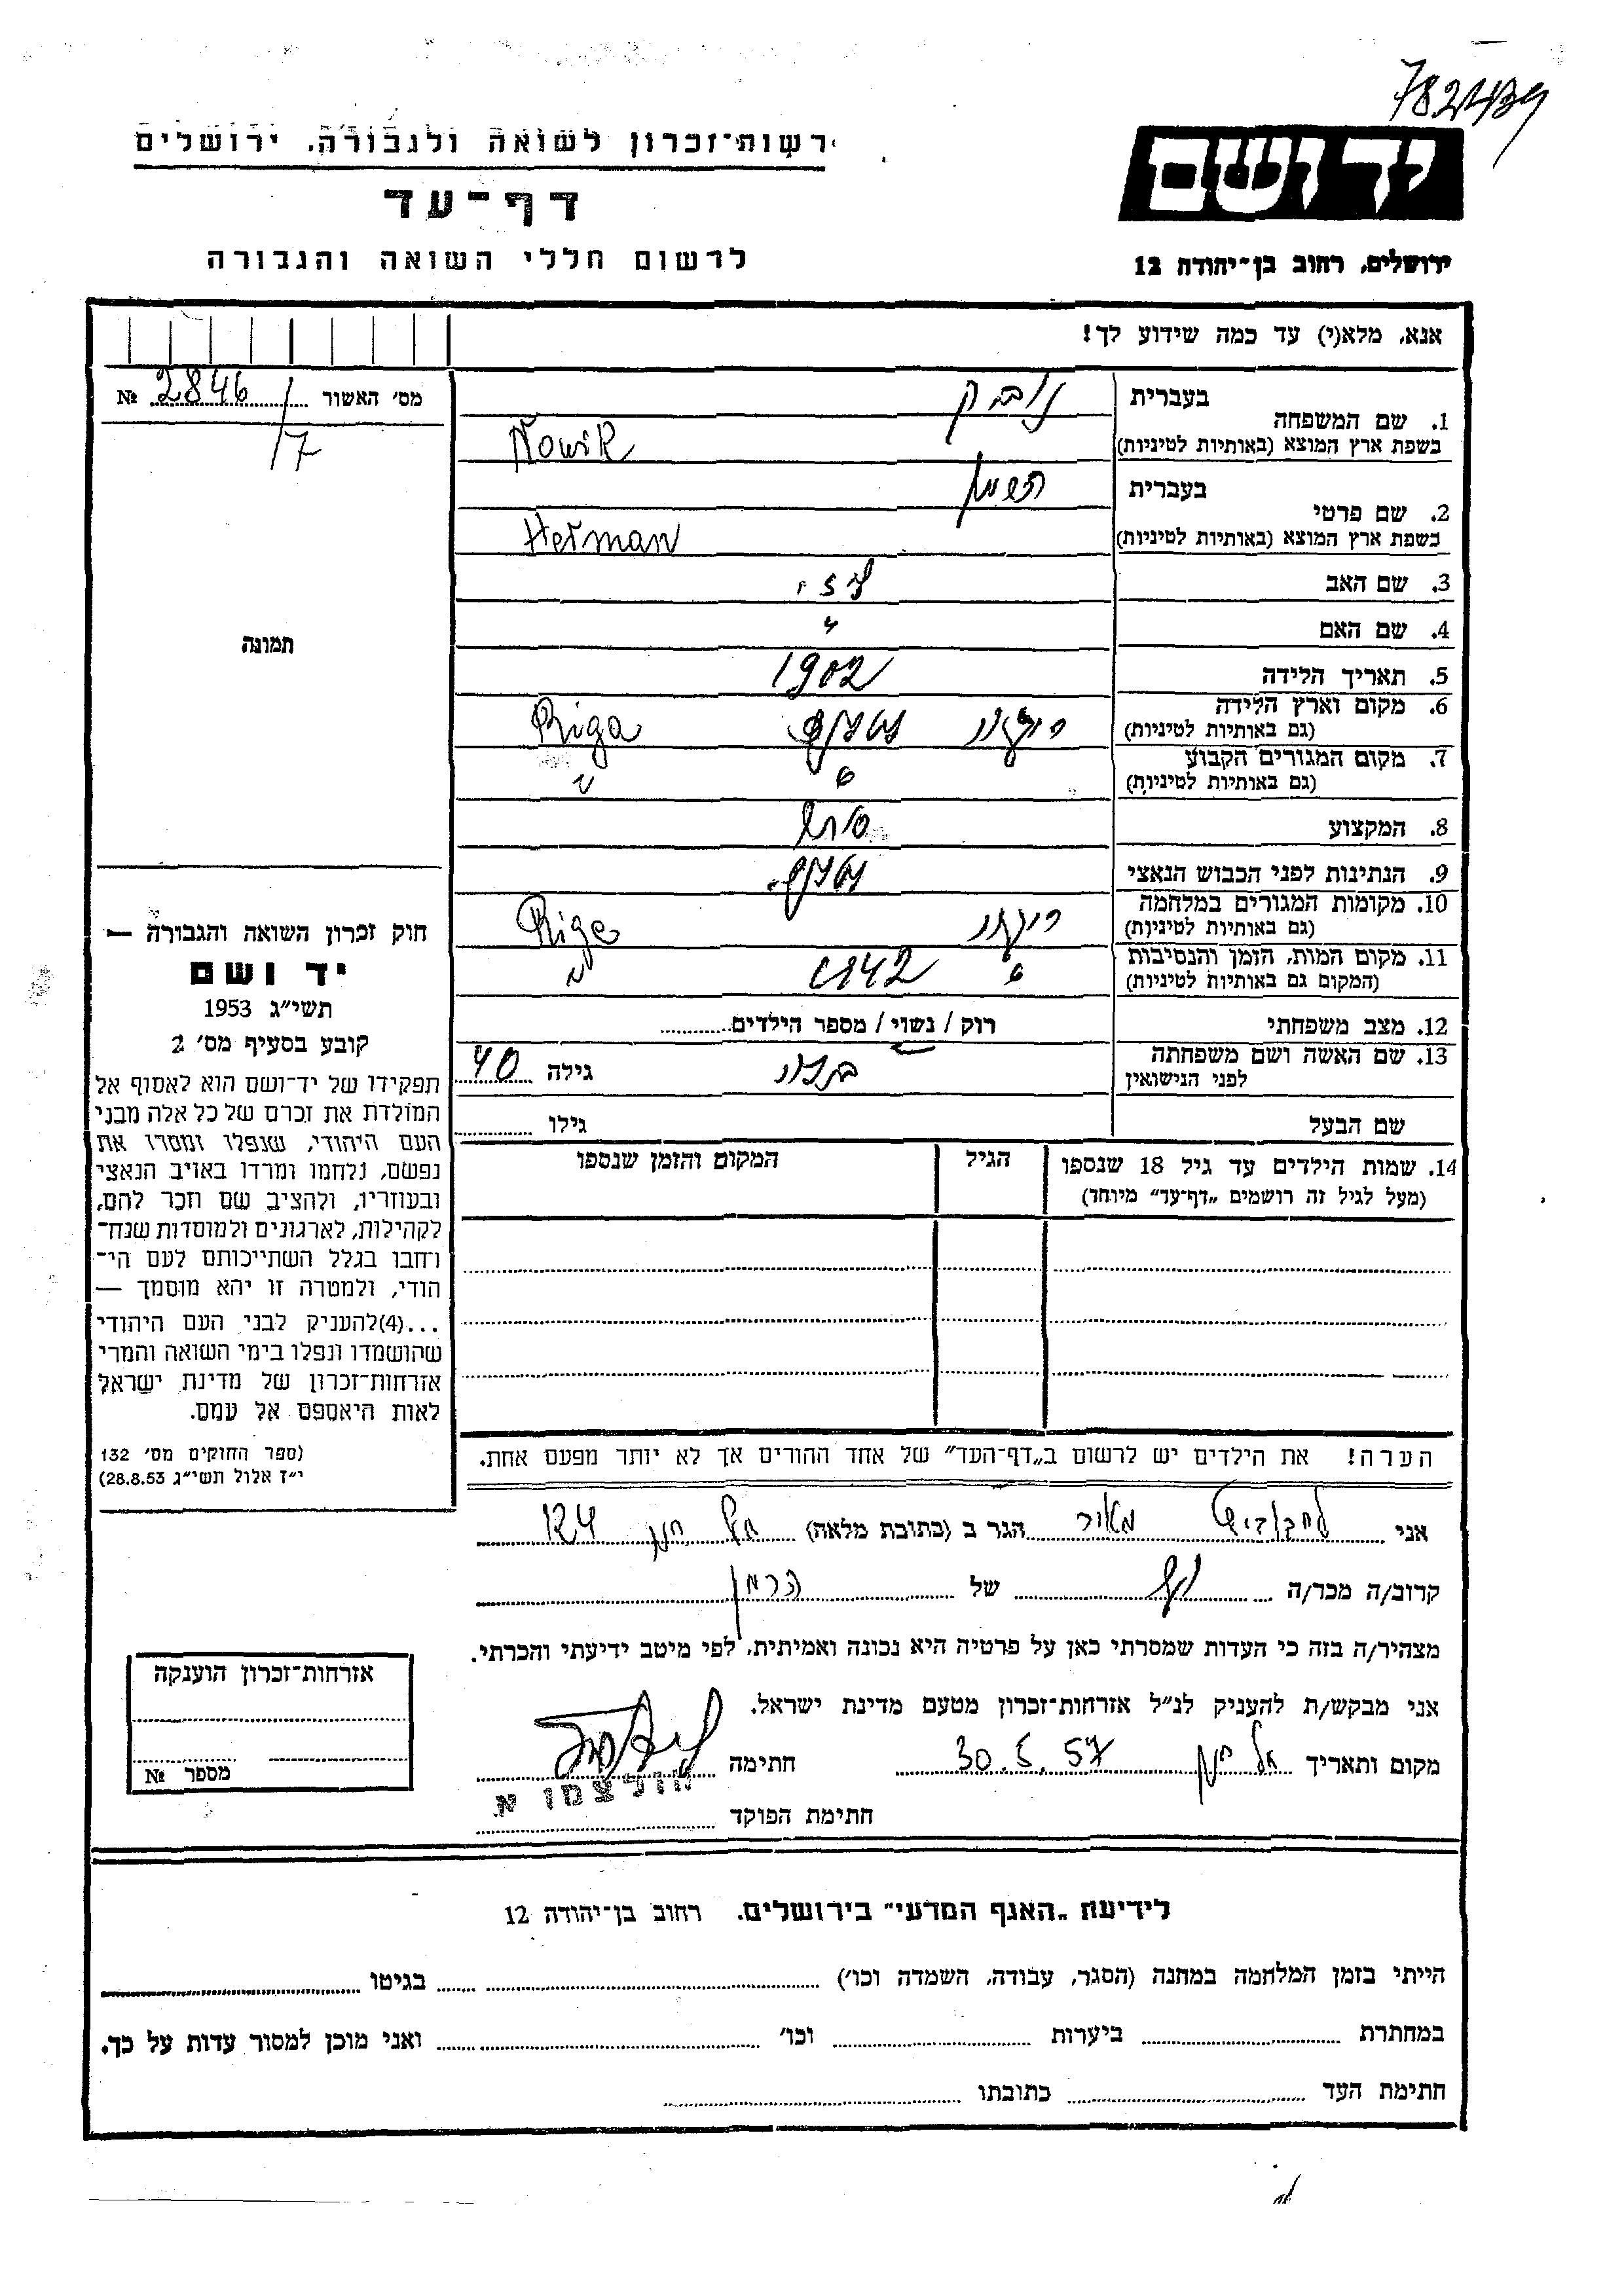 782439
רשות־זכרון לשואה ולגבורה, ירושלים
דף־עד
לרשום חללי השואה והגבורה
יד ושם
ירושלים, רחוב בן־יהודה 12
אנא, מלא(י) עד כמה שידוע לך!
מס׳ האשור 2846 №
/7
תמונה
1. שם המשפחה
בעברית נוביק
בשפת ארץ המוצא (באותיות לטיניות) Nowik
2. שם פרטי
בעברית
בשפת ארץ המוצא (באותיות לטיניות) Herman
3. שם האב
4. שם האם
5. תאריך הלידה 1902
6. מקום וארץ הלידה
(גם באותיות לטיניות) ריגה Riga
7. מקום המגורים הקבוע
(גם באותיות לטיניות) " "
8. המקצוע סוחר
9. הנתינות לפני הכבוש הנאצי
10. מקומות המגורים במלחמה
(גם באותיות לטיניות) ריגה Riga
11. מקום המות, הזמן והנסיבות
(המקום גם באותיות לטיניות) " 1942 "
12. מצב משפחתי רווק / נשוי / מספר הילדים
13. שם האשה ושם משפחתה
לפני הנישואין גילה 40
שם הבעל גילו
14. שמות הילדים עד גיל 18 שנספו
(מעל לגיל זה רושמים „דף־עד״ מיוחד)
הגיל
המקום והזמן שנספו
הערה! את הילדים יש לרשום ב„דף־העד״ של אחד ההורים אך לא יותר מפעם אחת.
חוק זכרון השואה והגבורה —
יד ושם
תשי״ג 1953
קובע בסעיף מס׳ 2
תפקידו של יד־ושם הוא לאסוף אל
המולדת את זכרם של כל אלה מבני
העם היהודי, שנפלו ומסרו את
נפשם, נלחמו ומרדו באויב הנאצי
ובעוזריו, ולהציב שם וזכר להם,
לקהילות, לארגונים ולמוסדות שנח־
רחבו בגלל השתייכותם לעם הי־
הודי, ולמטרה זו יהא מוסמך —
...(4)להעניק לבני העם היהודי
שהושמדו ונפלו בימי השואה והמרי
אזרחות־זכרון של מדינת ישראל
לאות היאספם אל עמם.
(ספר החוקים מס׳ 132
י״ז אלול תשי״ג 28.8.53)
אני מאיר הגר ב (כתובת מלאה) תל חנן 124
קרוב/ה מכר/ה של הרמן
מצהיר/ה בזה כי העדות שמסרתי כאן על פרטיה היא נכונה ואמיתית, לפי מיטב ידיעתי והכרתי.
אני מבקש/ת להעניק לנ״ל אזרחות־זכרון מטעם מדינת ישראל.
מקום ותאריך תל חנן 30.5.57 חתימה
הולצמן א.
חתימת הפוקד
אזרחות־זכרון הוענקה
מספר №
לידיעת „האגף המדעי״ בירושלים, רחוב בן־יהודה 12
הייתי בזמן המלחמה במחנה (הסגר, עבודה, השמדה וכו׳) בגיטו
במחתרת ביערות וכו׳ ואני מוכן למסור עדות על כך.
חתימת העד כתובתו